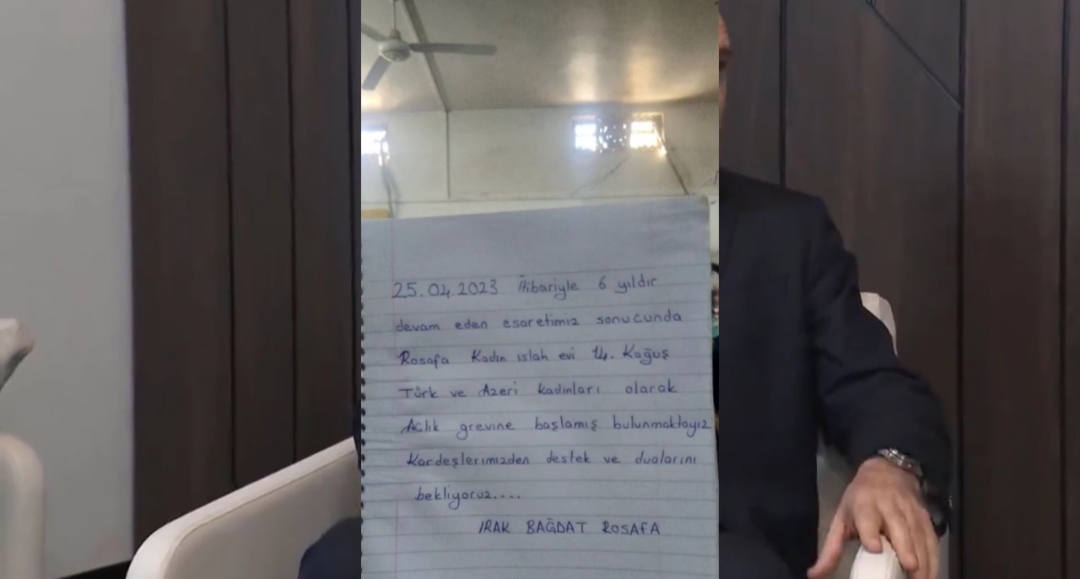 25.04.2023 itibariyle 6 yıldır
devam eden esaretimiz sonucunda
Rosafa Kadın ıslah evi 14. Koğuş
Türk ve Azeri Kadınları olarak
Açlık grevine başlamış bulunmaktayız
Kardeşlerimizden destek ve dualarını
bekliyoruz....
IRAK BAĞDAT ROSAFA